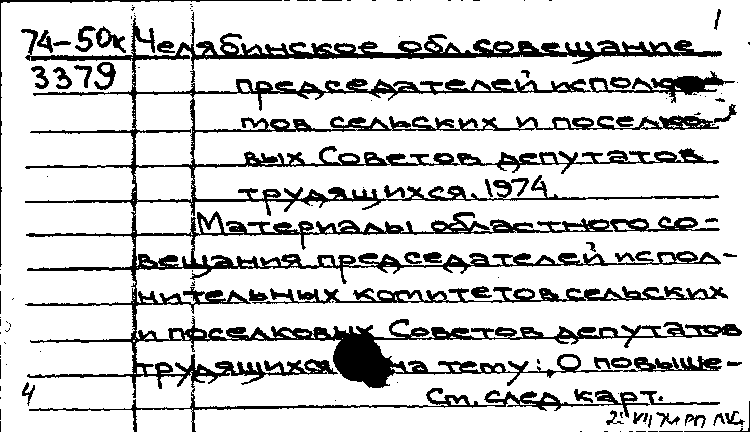 1
74-50к Челябинское обл. совещание
3379 председателей исполко-
тов сельских и поселко-
вых Советов депутатов
трудящихся. 1974.
Материалы областного со-
вещания председателей испол-
нительных комитетов сельских
и поселковых Советов депутатов
трудящихся на тему: „О повыше-
4 См. след. карт.